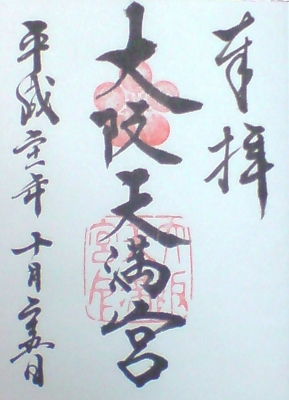 奉拝
大阪天満宮
平成二十一年十月二十五日